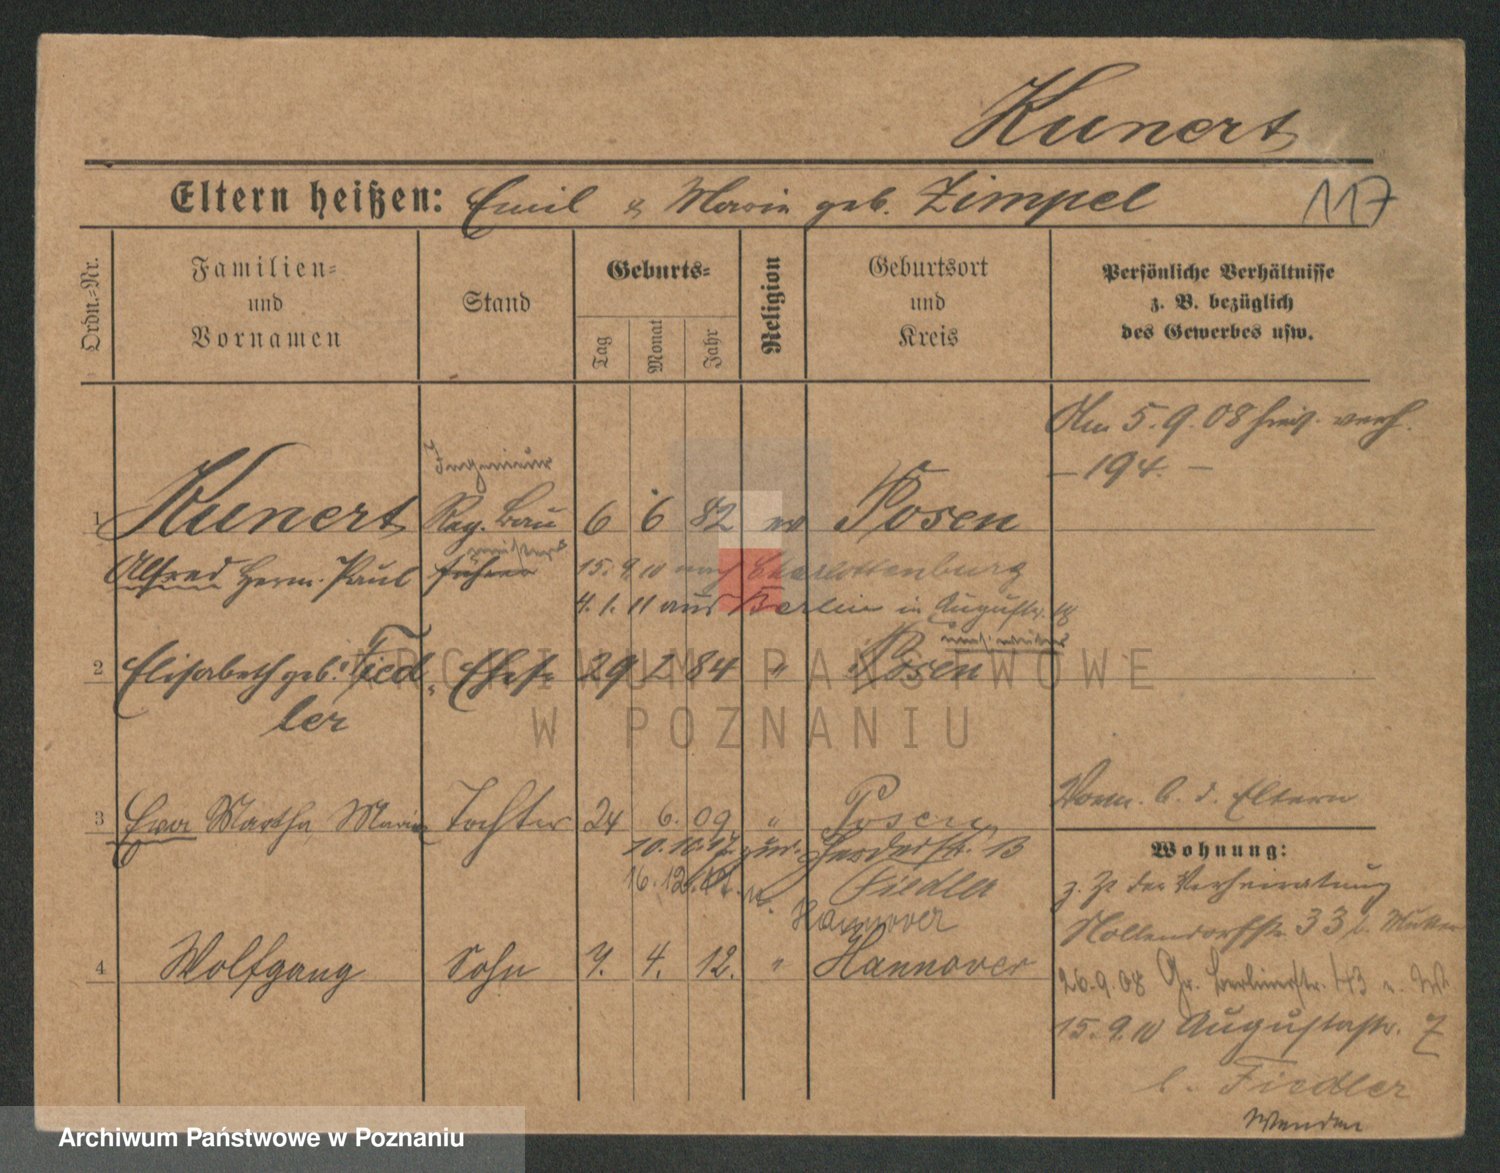 Kunert
Eltern heißen: Emil & Marie geb. Zimpel 117
Ordn.-Nr. Familien- und Vornamen Stand Geburts- Tag Monat Jahr Religion Geburtsort und Kreis Persönliche Verhältnisse z. B. bezüglich des Gewerbes usw.
Am 5.9.08 hier verh.
– 194. –
Ingenieur
1 Kunert Reg. Bau 6 6 82 ev Posen
meister
Alfred Herm. Paul führer 15.9.10 nach Charlottenburg
4.1.11 aus Berlin in Augustastr. 18
2 Elisabeth geb. Fied Ehefr. 29 2 84 " Posen
ler
3 Ewa Martha Marie Tochter 24 6. 09 " Posen
Vorm. b. d. Eltern
10.10.17 zur. 13
16.12. Fiedler
n. Hannover
4 Wolfgang Sohn 7. 4. 12. " Hannover
Wohnung:
z. Zt der Verheiratung
Nollendorfstr. 33 b. Mutter
26.9.08 Gr. Berlinerstr. 143
15.9.10 Augustastr. 7
b. Fiedler
Wenden
ARCHIWUM PAŃSTWOWE
W POZNANIU
Archiwum Państwowe w Poznaniu